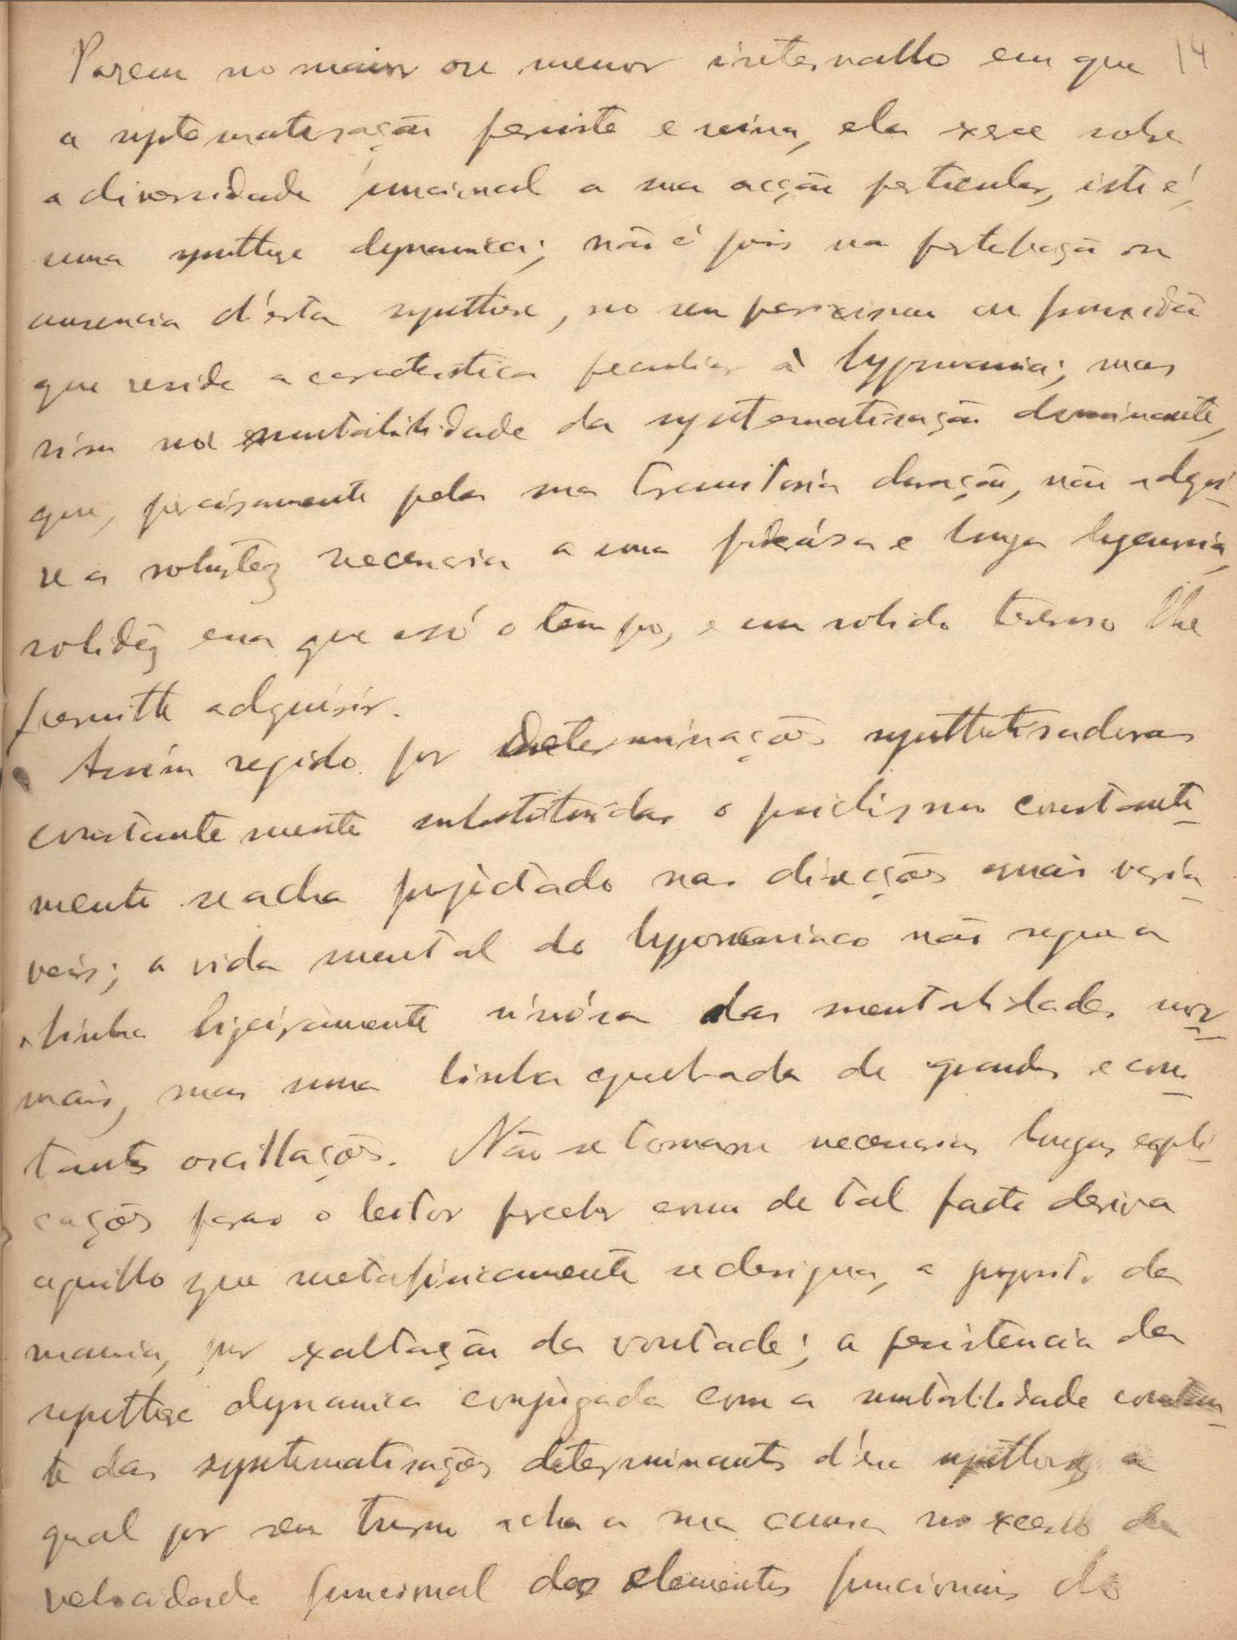 Porem no maior ou menor intervallo em que 14
a systematisação persiste e reina, ela exerce sobre
a diversidade funcional a sua acção particular, isto é,
uma synthese dynamica; não é pois na perturbação ou
ausencia d'esta synthese, no seu ou
que reside a caracteristica peculiar à hypomania; mas
sim na mutabilidade da systematisação dominante,
que, precisamente pela sua transitoria duração, não adqui-
re a robustez necessaria a uma e longa hegemonia,
solidez essa que só o tempo, e um solido terreno lhe
permitte adquirir.
Assim regido por determinações synthetisadoras
constantemente substituidas o psychismo constante-
mente se acha projectado nas direcções mais varia-
veis; a vida mental do hypomaniaco não segue a
linha ligeiramente sinuósa das mentalidades nor-
mais, mas uma linha quebrada de grandes e cons-
tantes oscillações. Não se tornam necessarias longas expli-
cações para o leitor perceber como de tal facto deriva
aquillo que metafisicamente se designa, a proposito da
mania, por exaltação da vontade; a persistencia da
synthese dynamica conjugada com a mutabilidade constan-
te das systematisações determinantes d'essa synthese a
qual por seu turno acha a sua causa no excesso da
velocidade funcional dos elementos funcionais do